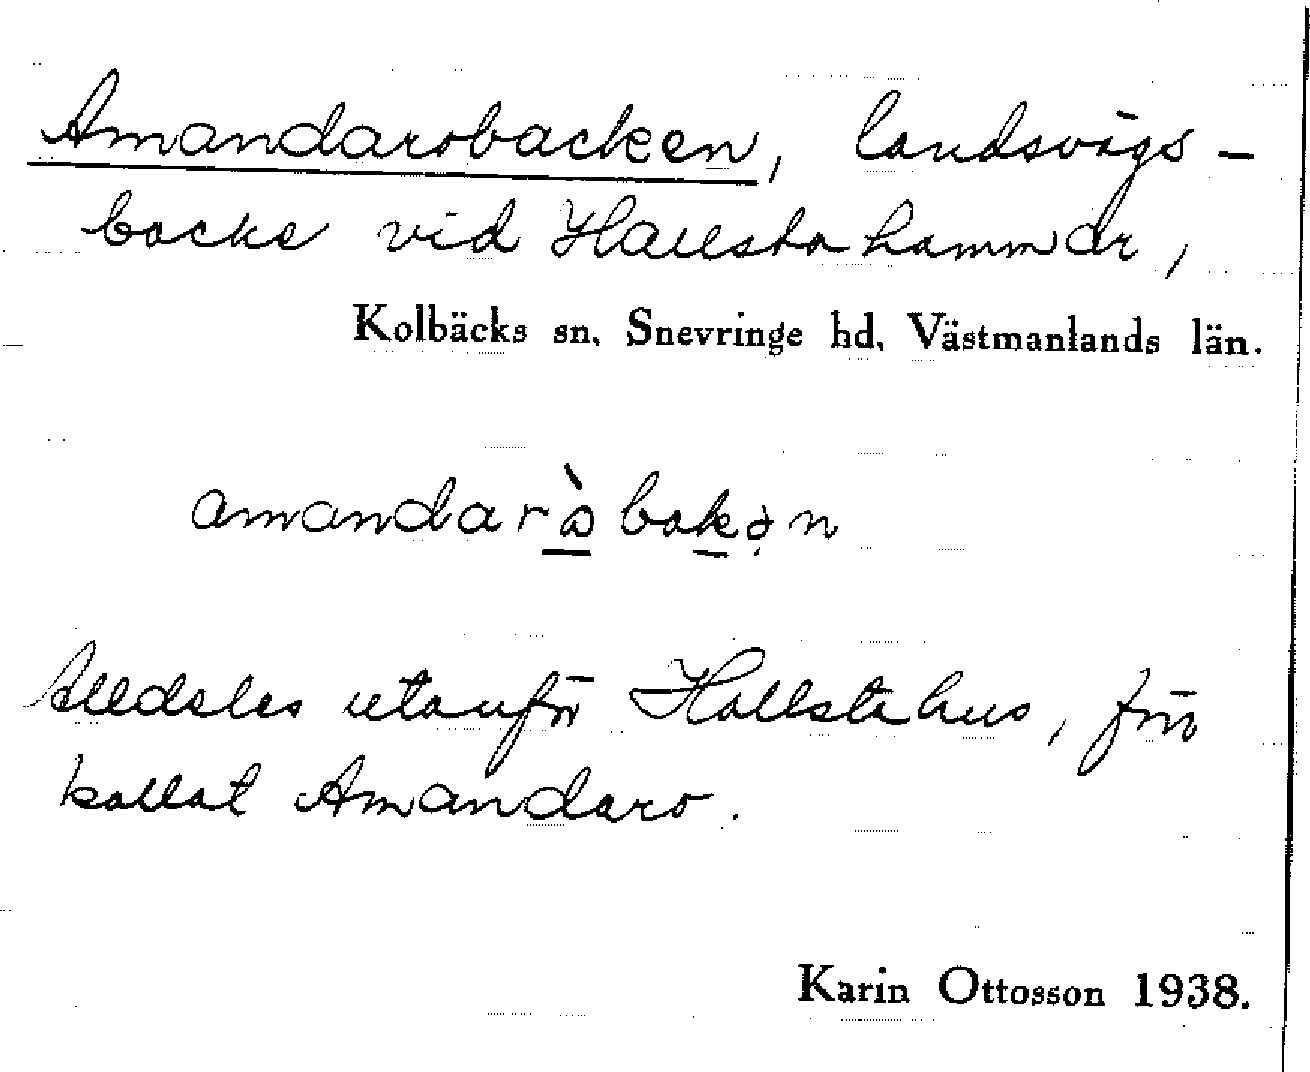 Amandarobacken, landsvägs-
backe vid Hallstahammar,
Kolbäcks sn, Snevringe hd, Västmanlands län.
amandaròbakən
Alldeles utanför Hallstahus, förr
kallat Amandaro.
Karin Ottosson 1938.